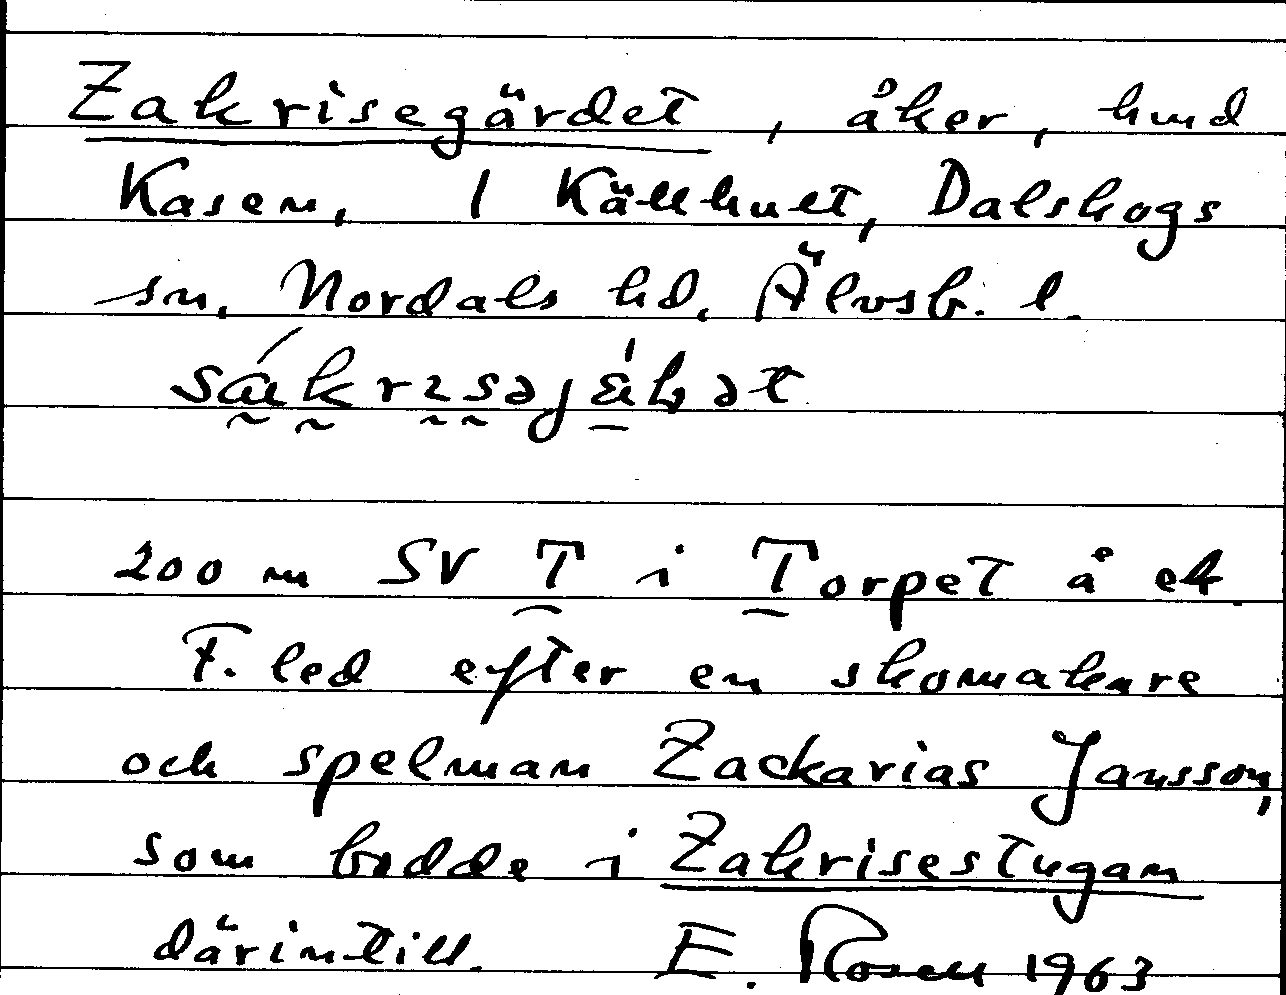 Zakrisegärdet, åker, hmd
Kasen, 1 Källhult, Dalskogs
sn, Nordals hd, Älvsb. l.
200 m SV T i Torpet å ek.
F. led efter en skomakare
och spelman Zackarias Jansson,
som bodde i Zakrisestugan
därintill. E. Rosell 1963